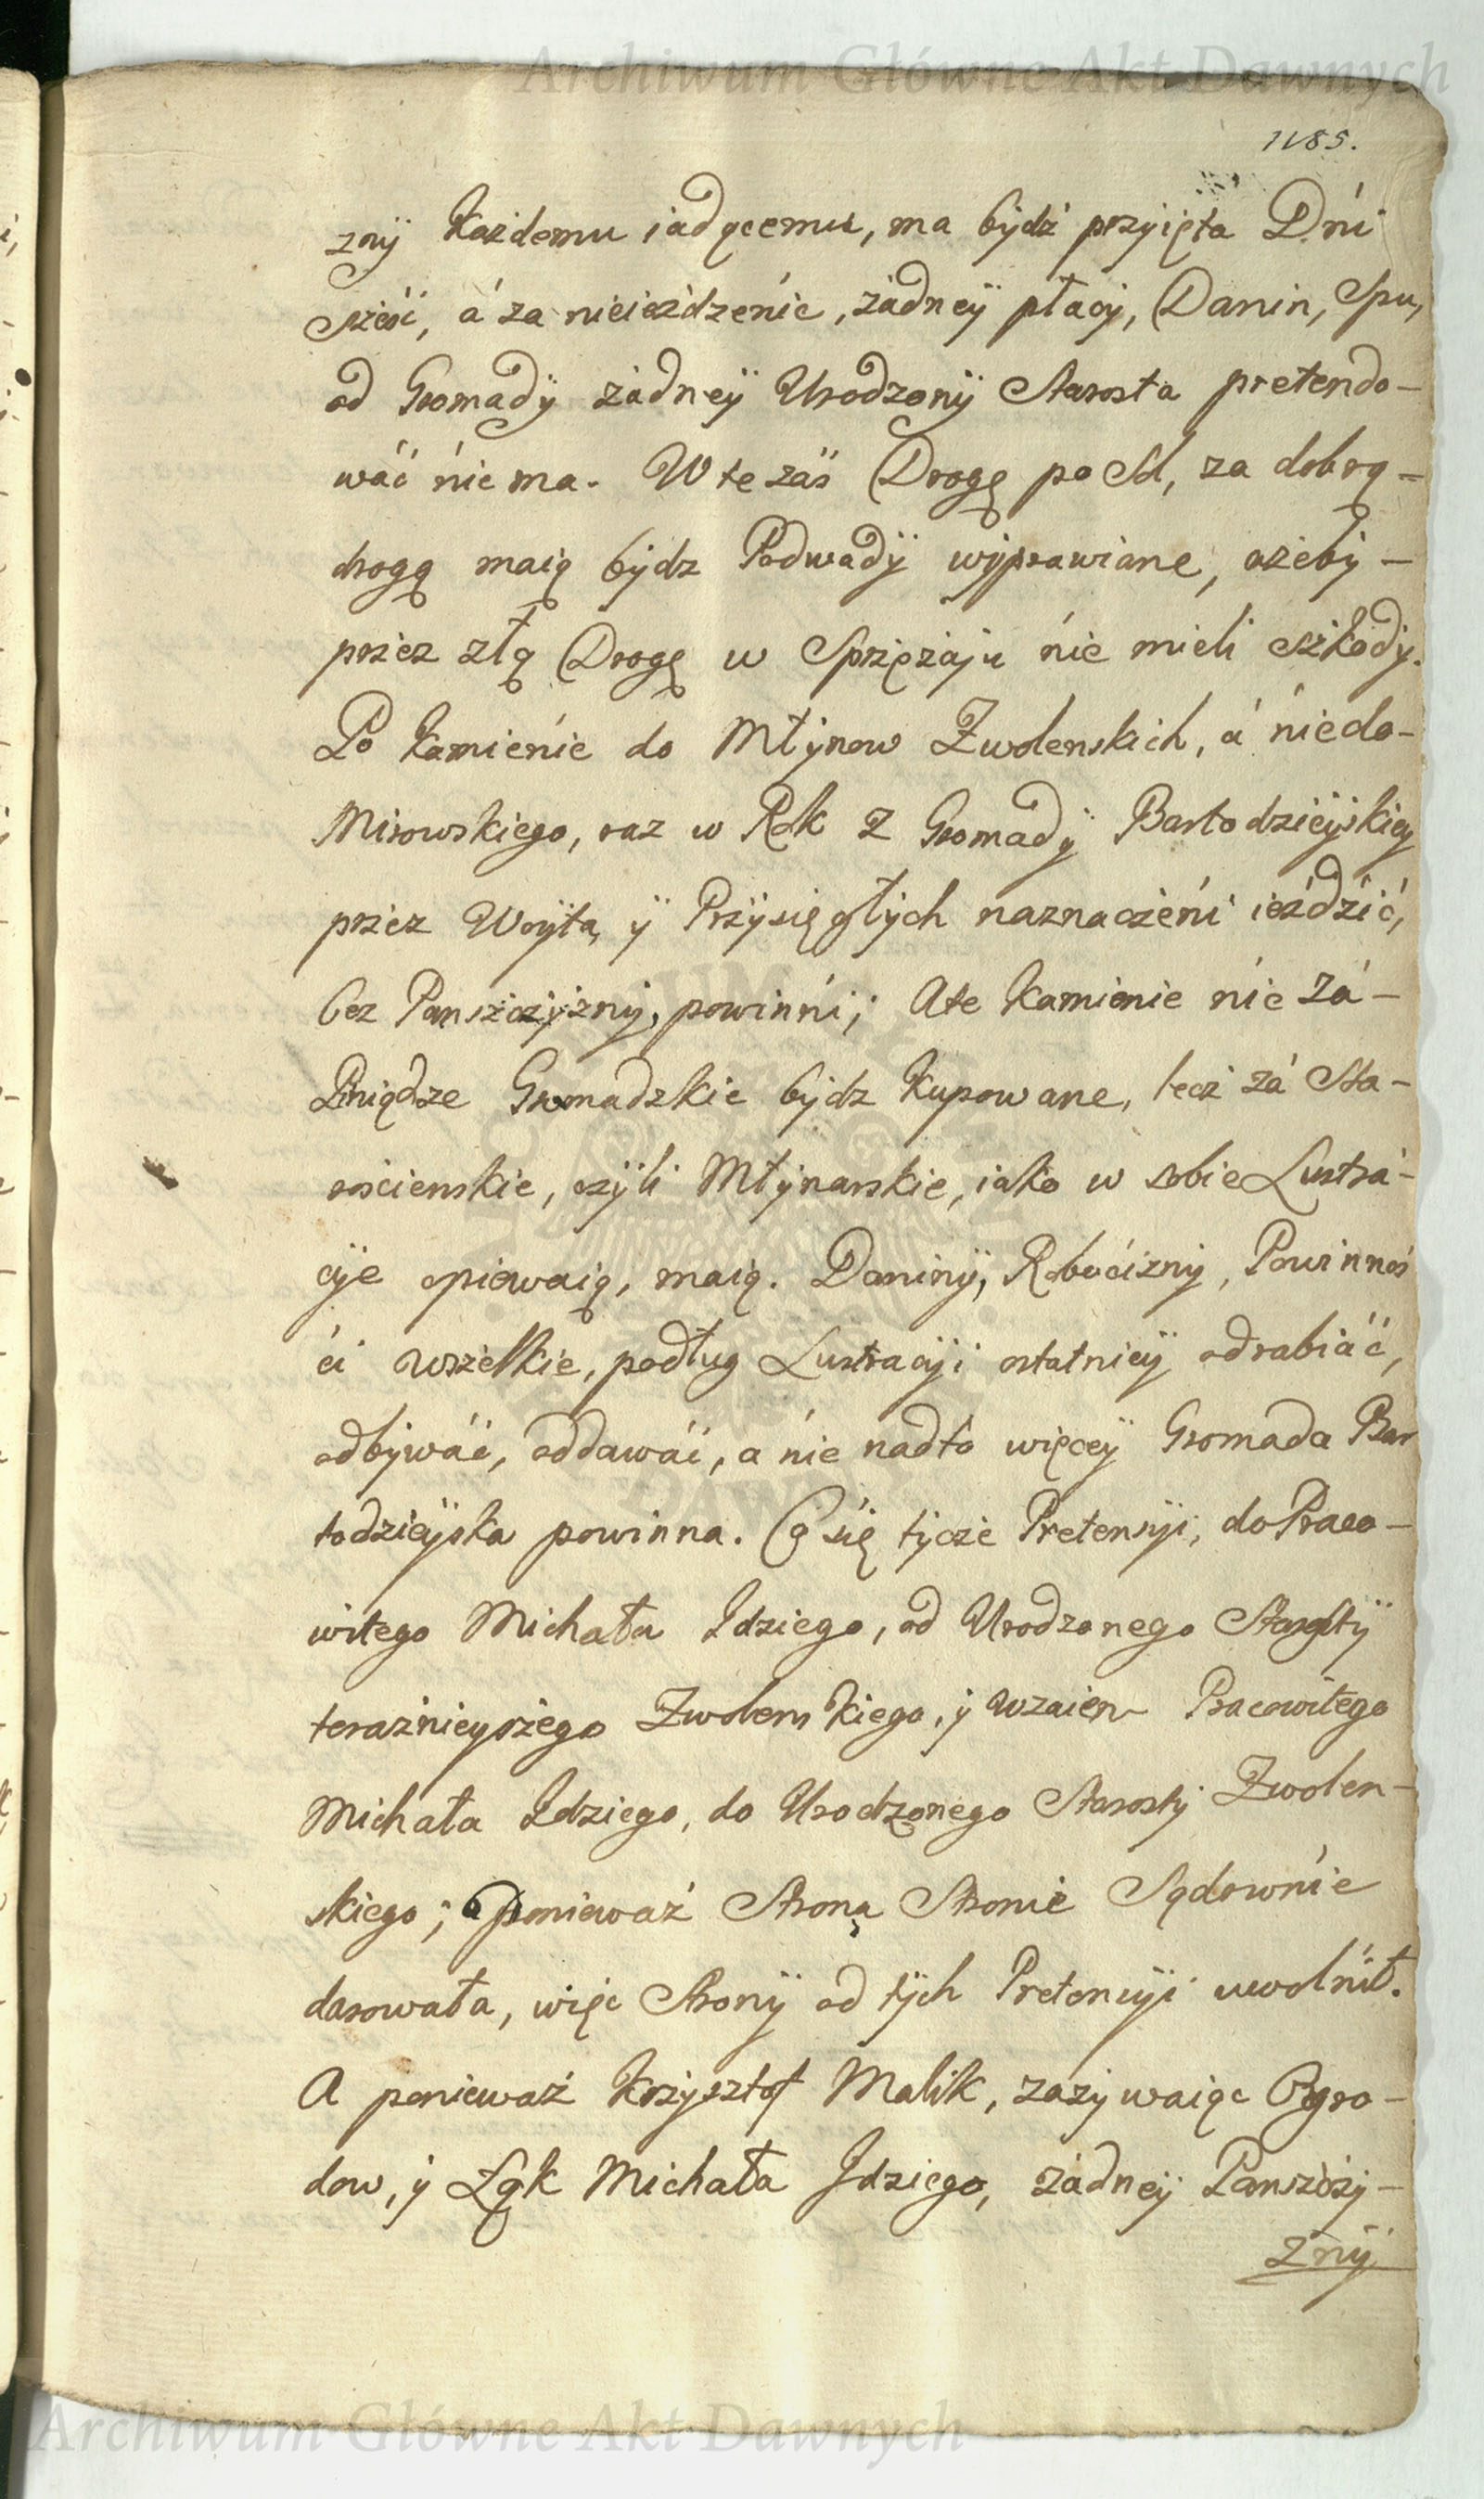 Archiwum Główne Akt Dawnych
1185.
zny Każdemu iadącemu, ma bydź przyięta Dni
sześć, á za nieieżdzenie, żadney płacy, Danin, Spu,
od Gromady żadney Urodzony Starosta pretendo-
wáć nie ma. W te záś Drogę po Sól, za dobrą-
drogą maią bydz Podwady wyprawiane, ażeby-
przez złą Drogę w Sprzężaju nie mieli szkody.
Po Kamienie do Młynow Zwolenskich, á nie do-
Mirowskiego, raz w Rok z Gromady Bartodzieyskiey
przez Woyta, y Przysięgłych naznaczeni ieździć,
bez Panszczyzny, powinni; A te Kamienie nie zá-
Pniądze Gromadzkie bydz Kupowane, lecz zá Sta-
roscienskie, czyli Młynarskie, iako w sobie Lustrá-
cye opiewaią, maią. Daniny, Robocizny, Powinnoś
ći wszelkie, podług Lustracyi ostatniey odrabiáć,
odbywáć, oddawáć, a nie nadto więcey Gromada Bar
todzieyska powinna. Co się tycze Pretensyi, do Praco-
witego Michała Jdziego, od Urodzonego Starosty
teraznieyszego Zwolenskiego, y wzaiem Pracowitego
Michała Jdziego, do Urodzonego Starosty Zwolen-
skiego; ponieważ Strona Stronie Sądownie
darowała, więc Strony od tych Pretensyi uwolnił.
A ponieważ Krzysztof Malik, zazywaiąc Ogro-
dow, y Łąk Michała Jdziego, żadney Panszczy-
zny
Archiwum Główne Akt Dawnych